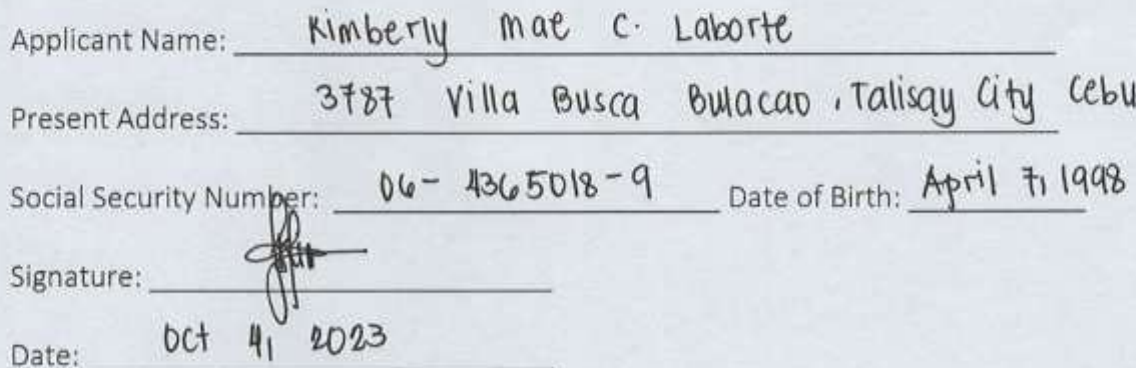 Applicant Name: Kimberly Mae C. Laborte
Present Address: 3787 Villa Busca Bulacao, Talisay City Cebu
Social Security Number: 06-4365018-9 Date of Birth: April 7, 1998
Signature:
Date: Oct 4, 2023